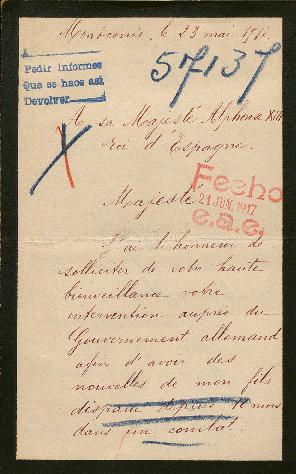 Montcenis, le 23 mai 1917.
57137
Pedir informes
Que se hace así
Devolver
A sa Majesté Alphonse XIII
roi d'Espagne.
Majesté
Fecho
21 JUN. 1917
c.a.c.
J'ai l'honneur de
solliciter de votre haute
bienveillance votre
intervention auprès du
Gouvernement allemand
afin d'avoir des
nouvelles de mon fils
disparu depuis mois
dans un combat.